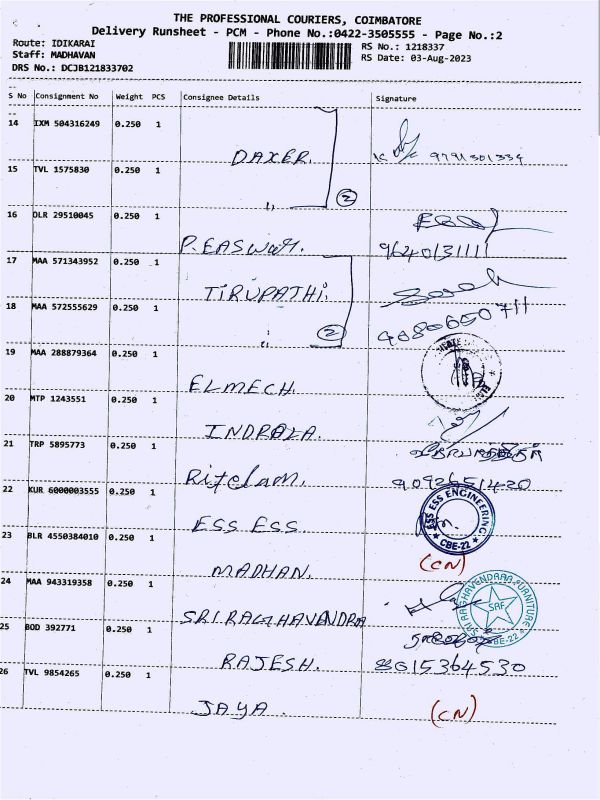 THE PROFESSIONAL COURIERS, COIMBATORE
Delivery Runsheet - PCM - Phone No.:0422-3505555 - Page No.:2
Route: IDIKARAI
Staff: MADHAVAN
DRS No.: DCJB121833702
RS No.: 1218337
RS Date: 03-Aug-2023
S No Consignment No Weight PCS Consignee Details Signature
14 IXM 504316249 0.250 1
DAXER. 9791301334
15 TVL 1575830 0.250 1
2
16 DLR 29510045 0.250 1
P.EASWAR. 9640131111
17 MAA 571343952 0.250 1
TIRUPATHI.
18 MAA 572555629 0.250 1
2 9080650711
19 MAA 288879364 0.250 1
ELMECH.
20 MTP 1243551 0.250 1
INDRALA.
21 TRP 5895773 0.250 1
Ritelam. 9092651420
22 KUR 6000003555 0.250 1
ESS ESS. ESS ESS ENGINEERING CBE-22
23 BLR 4550384010 0.250 1 (CN)
MADHAN.
24 MAA 943319358 0.250 1
SRI RAGHAVENDRA SRI RAGHAVENDRAA FURNITURE SRF CBE-22
25 BOD 392771 0.250 1
RAJESH. 8015364530
26 TVL 9854265 0.250 1
JAYA. (CN)